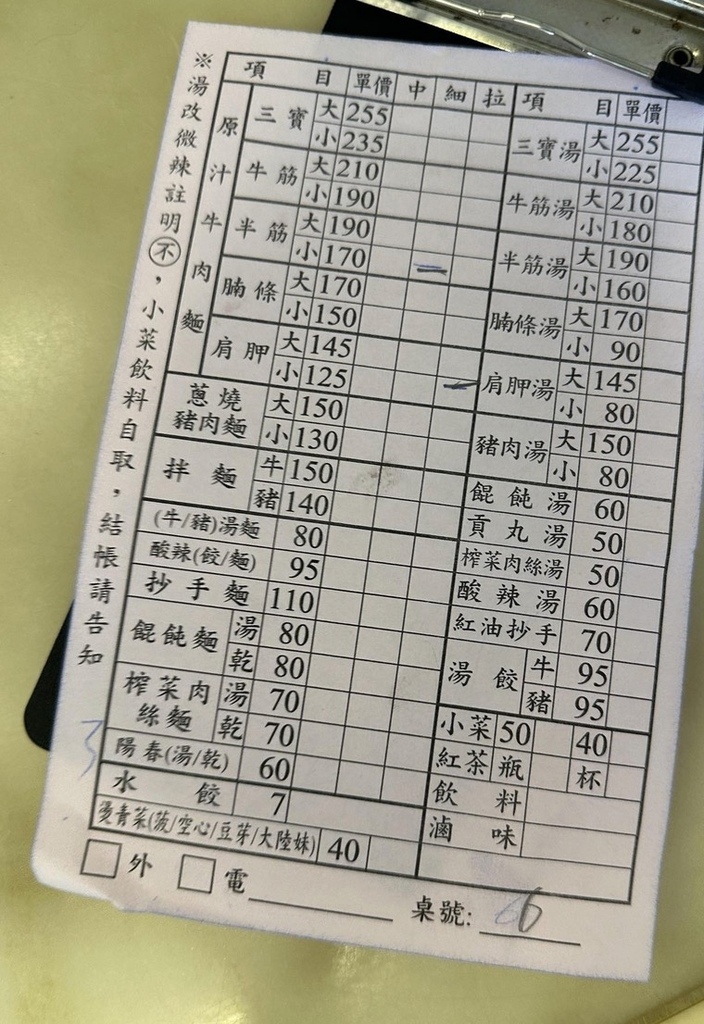 ※湯改微辣註明不，小菜飲料自取，結帳請告知
項 目 單價 中 細 拉
原汁牛肉麵
三寶 大 255
小 235
牛筋 大 210
小 190
半筋 大 190
小 170 一
腩條 大 170
小 150
肩胛 大 145
小 125 一
蔥燒豬肉麵 大 150
小 130
拌麵 牛 150
豬 140
(牛/豬)湯麵 80
酸辣(餃/麵) 95
抄手麵 110
餛飩麵 湯 80
乾 80
榨菜肉絲麵 湯 70
乾 70
陽春(湯/乾) 60
水餃 7
燙青菜(菠/空心/豆芽/大陸妹) 40
項 目 單價
三寶湯 大 255
小 225
牛筋湯 大 210
小 180
半筋湯 大 190
小 160
腩條湯 大 170
小 90
肩胛湯 大 145
小 80
豬肉湯 大 150
小 80
餛飩湯 60
貢丸湯 50
榨菜肉絲湯 50
酸辣湯 60
紅油抄手 70
湯餃 牛 95
豬 95
小菜 50 40
紅茶 瓶 杯
飲料
滷味
3
□外 □電 桌號: 6